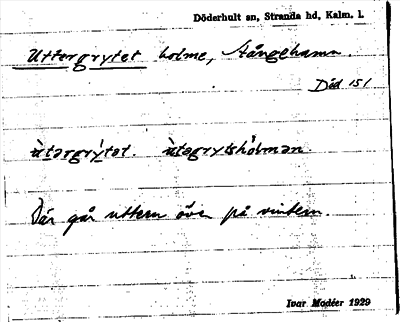 Döderhult sn, Stranda hd, Kalm. l.
Uttergrytet holme, Stångehamn.
Död 151
ùtərgrỳtət. ùtəgrytshòlmən.
Där går uttern över på vintern.
Ivar Modéer 1929